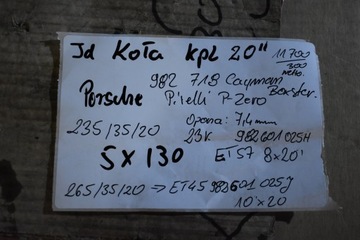 Jd Koła kpl 20" 11700
300
netto.
982 718 Cayman
Porsche Pirelli P-Zero Boxster.
Opona: 7,4mm
235/35/20 23r 982601025H
5x130 ET57 8x20"
265/35/20 → ET45 982601025J
10"x20